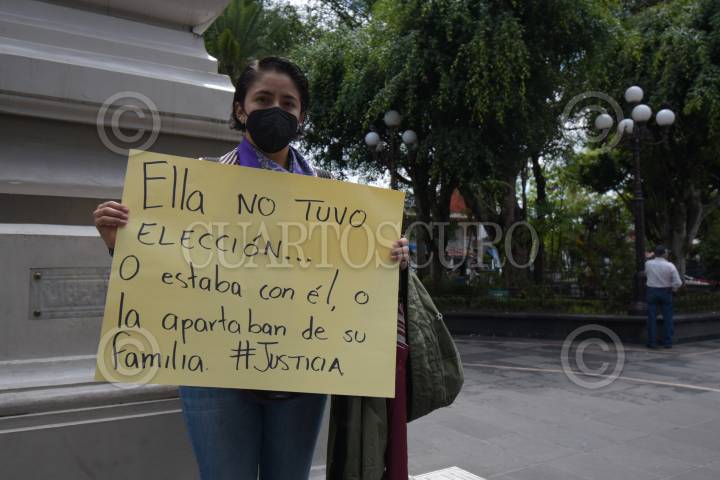 Ella NO TUVO
ELECCIÓN...
O estaba con él, o
la apartaban de su
familia. #JUSTICIA
CUARTOSCURO